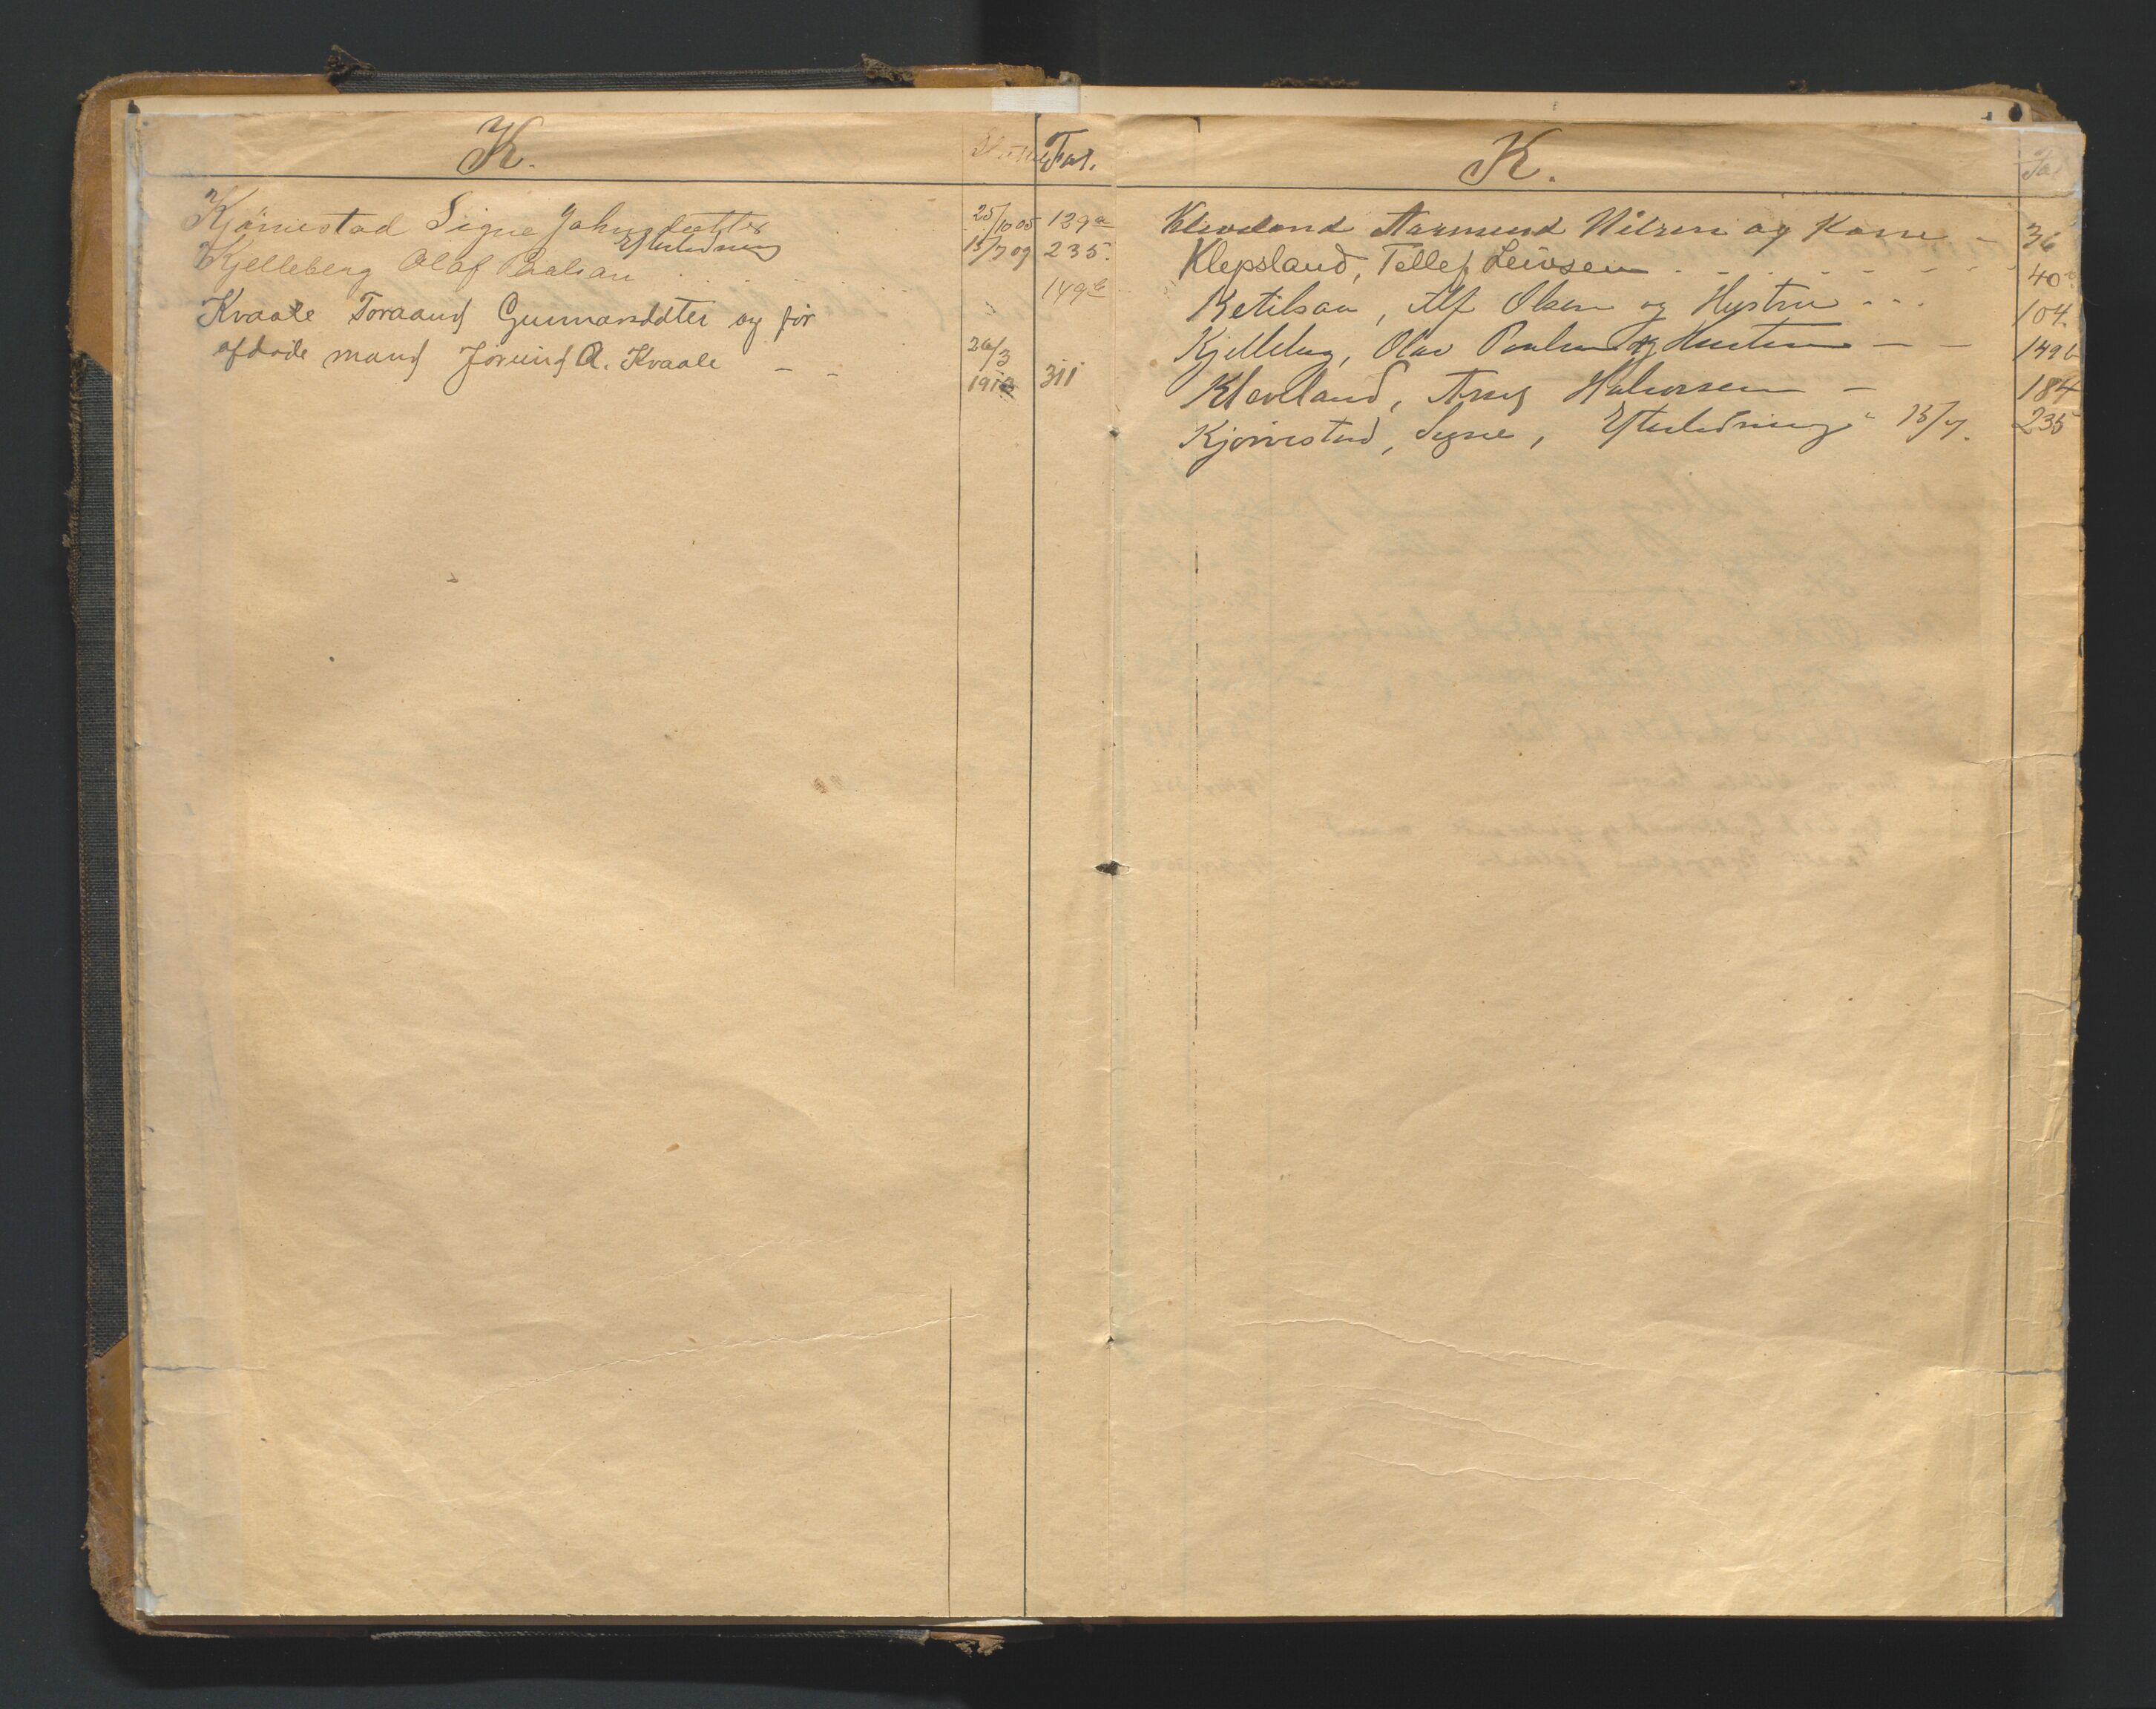 K. Fol.
Kjönnestad Signe Johnsdatter 25/10 05 129a
Efterledning 15/7 09 235.
Kjelleberg Olaf Paulsen 149b
Kvaale Toraand Gunnarsdter og for
afdøde mand Jorund A. Kvaale - - 26/3 191 311
K. Fol
Kleveland Aasmund Nilsen og Kone - 36
Klepsland, Tellef Leivsen 40
Ketilsaa, Alf Olsen og Hustru 104.
Kjelleberg, Olav Paulsen og Hustru - - 149b
Klevland, Halvorsen - 184
Kjønnestad, Signe, Efterledning 15/7. 235